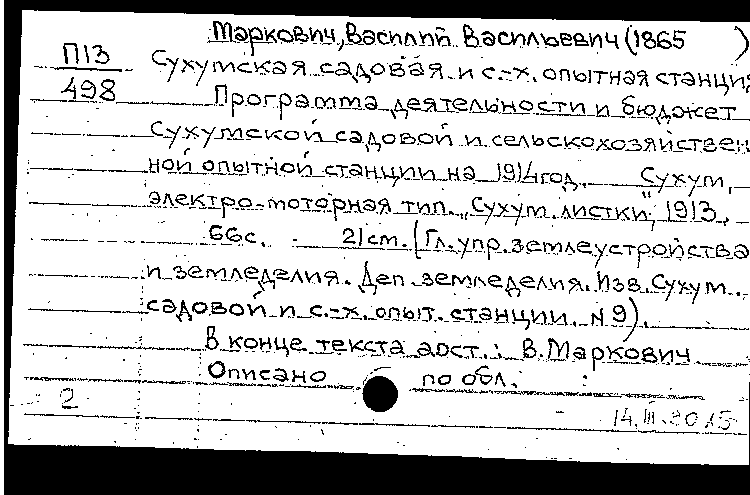 Маркович, Василий Васильевич (1865 )
П13
498
Сухумская садовая и с.-х. опытная станция
Программа деятельности и бюджет
Сухумской садовой и сельскохозяйствен
ной опытной станции на 1914 год. Сухум,
электро-моторная тип. "Сухум. листки", 1913.
66с. 21 cm. (Гл. упр. землеустройства
и земледелия. Деп. земледелия. Изв. Сухум.
садовой и с.-х. опыт. станции. N9).
В конце текста авт.: В. Маркович
Описано по обл.
2
14.III.2015